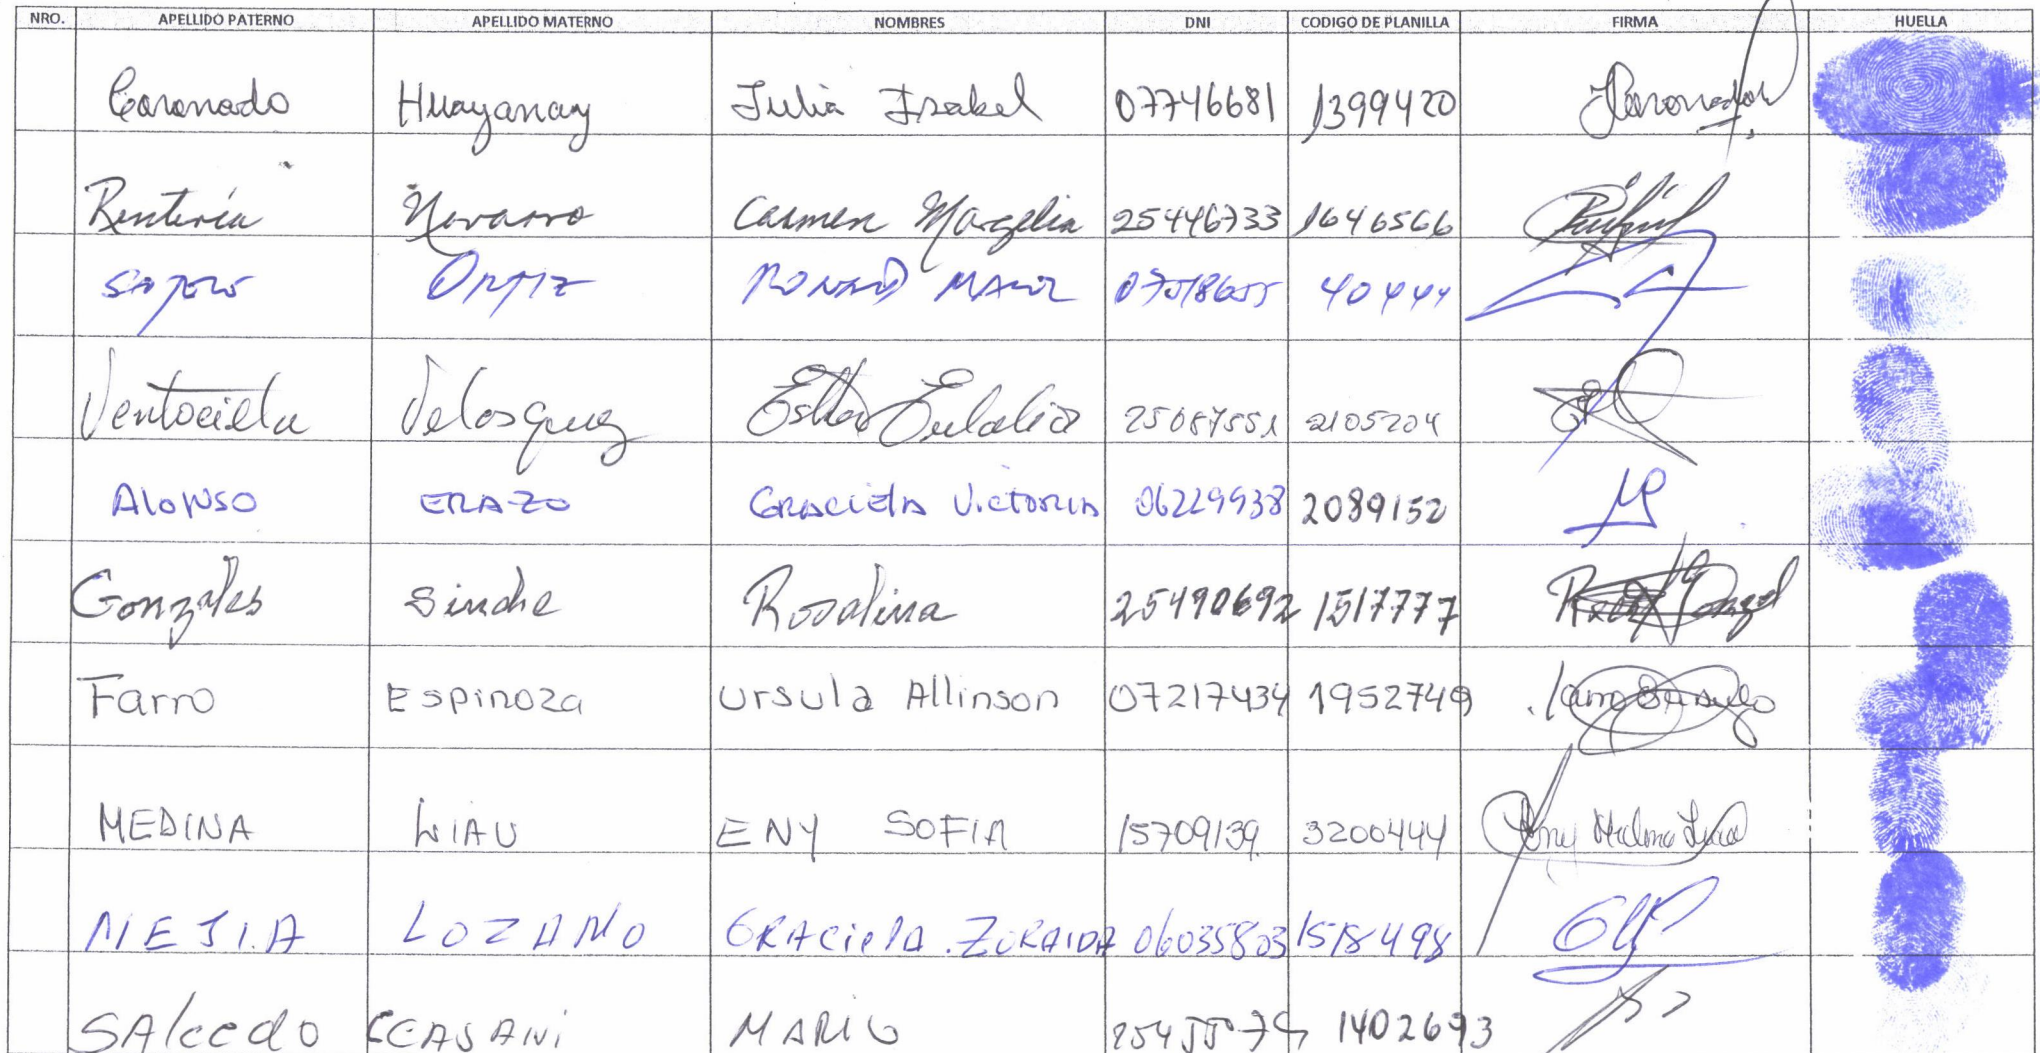 NRO. APELLIDO PATERNO APELLIDO MATERNO NOMBRES DNI CODIGO DE PLANILLA FIRMA HUELLA
Coronado Huayanay Julia Isabel 07746681 1399420
Rentería Navarro Carmen Margelia 25446733 1646566
ORTIZ 40444
Ventocilla Velasquez Esther Eulalia 25087551 2105204
ALONSO ERAZO GRACIELA VICTORIA 06229938 2089152
Gonzales Sinche Rosalina 25490692 1517777
Farro Espinoza Ursula Allinson 07217434 1952749
MEDINA LIAU ENY SOFIA 15709139 3200444 Eny Medina Liau
MEJIA LOZANO GRACIELA ZORAIDA 06035803 1518498
SALCEDO CCASANI MARIO 1402693